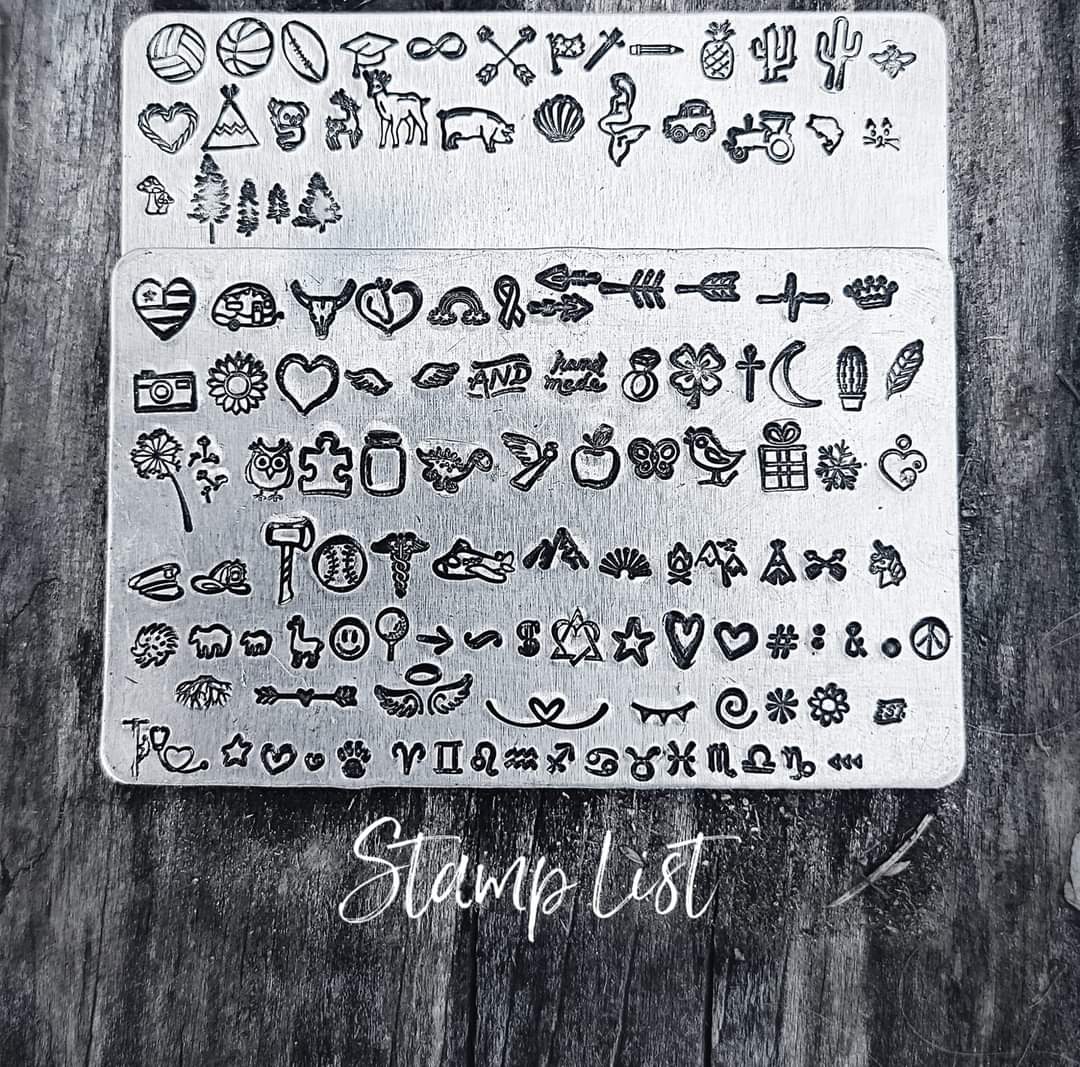 AND
hand
made
$
# : & .
Stamp List